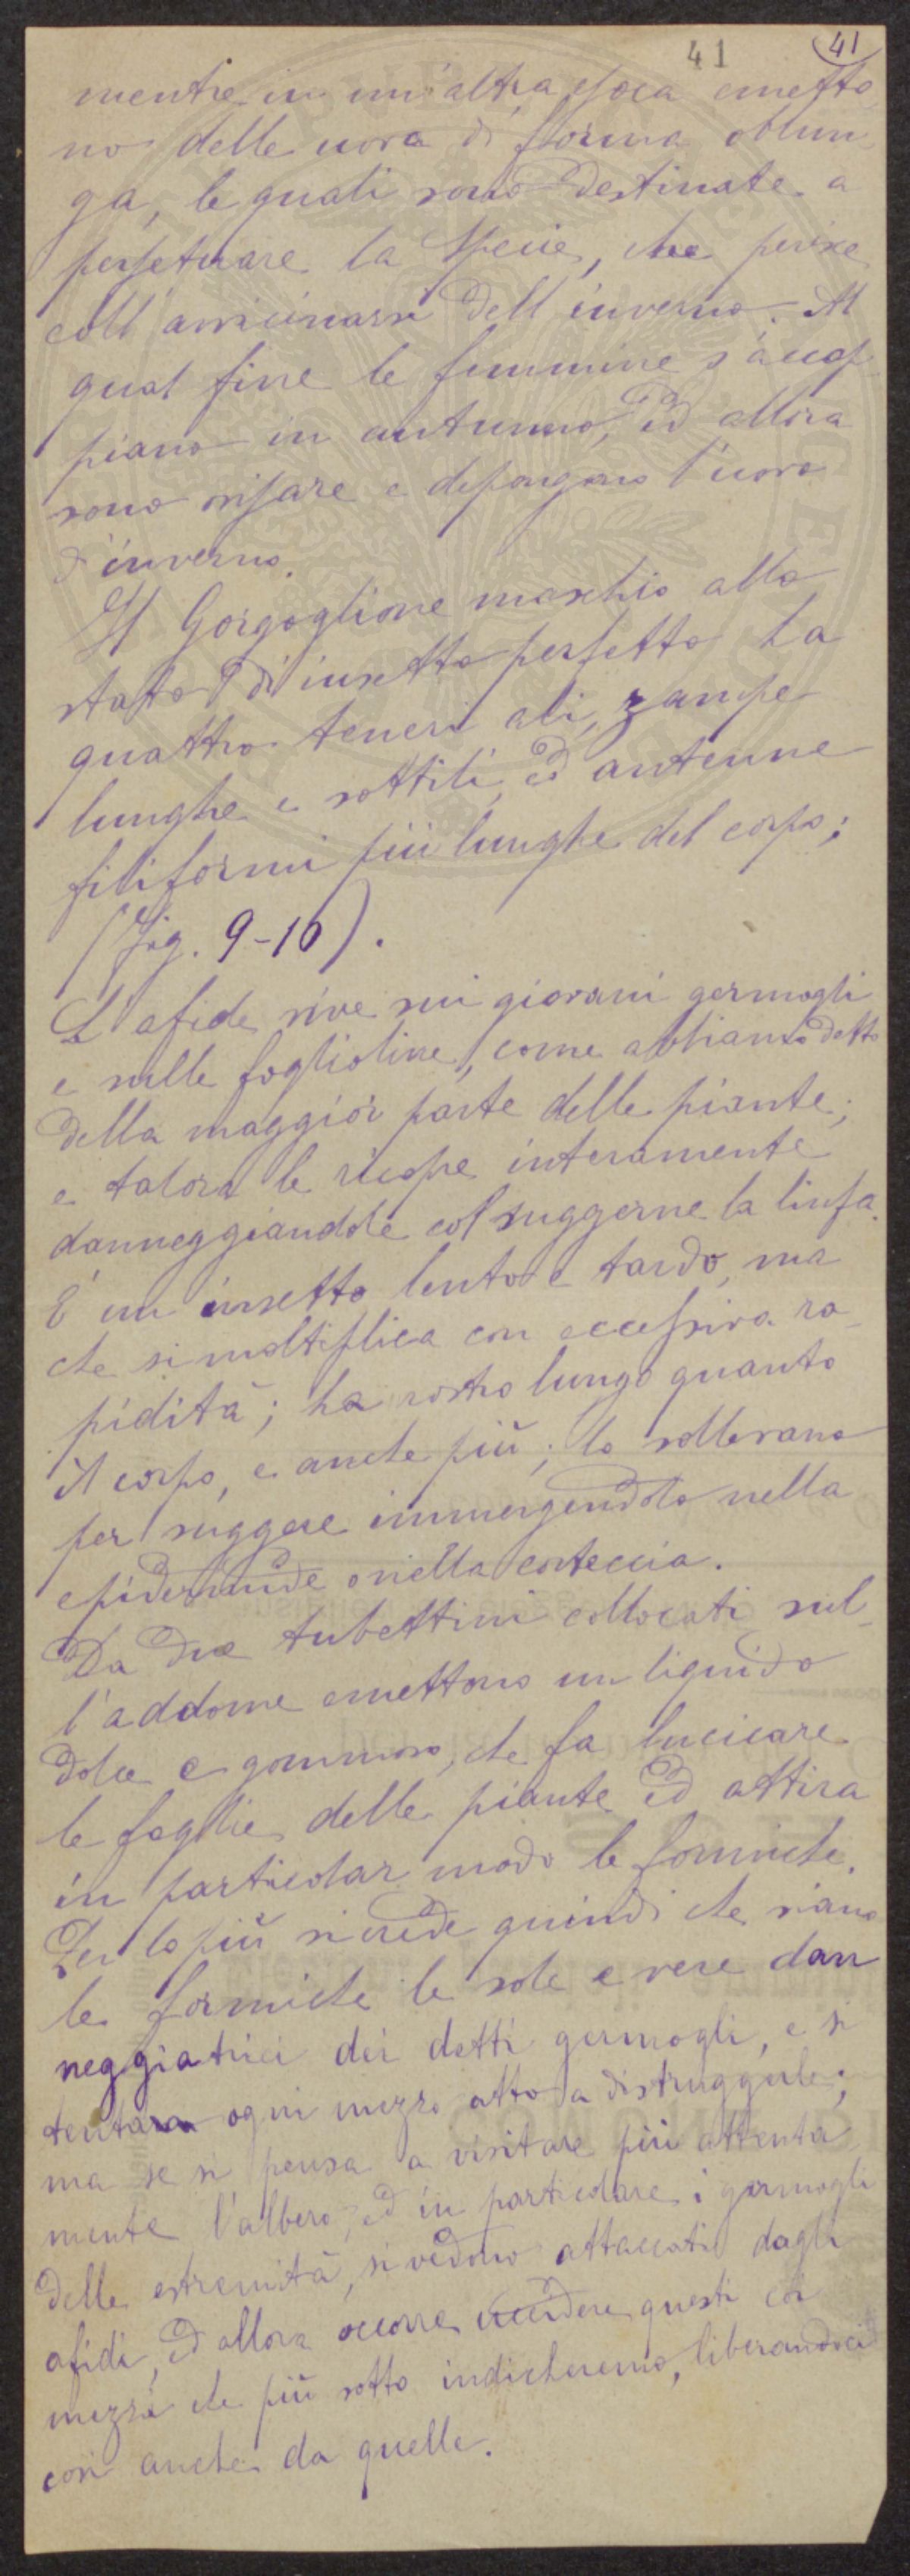 41 41
mentre in un'altra epoca emetto
no delle uova di forma oblun
ga, le quali sono destinate a
perpetuare la specie, che perisce
coll'avvicinarsi dell'inverno. Al
qual fine le femmine s'accop
piano in autunno, ed allora
sono ovipare e depongono l'uovo
d'inverno.
Il Gorgoglione maschio allo
stato di insetto perfetto ha
quattro teneri ali, zampe
lunghe e sottili, ed antenne
filiformi più lunghe del corpo;
(Fig. 9-10).
L'afide vive sui giovani germogli
e sulle foglioline, come abbiamo detto
della maggior parte delle piante;
e talora le ricopre interamente
danneggiandole col suggerne la linfa.
È un insetto lento e tardo, ma
che si moltiplica con eccessiva ra-
pidità; ha rostro lungo quanto
il corpo, e anche più; lo sollevano
per suggere immergendolo nella
epidermide o nella corteccia.
Da due tubettini collocati sul-
l'addome emettono un liquido
dolce e gommoso, che fa luccicare
le foglie delle piante ed attira
in particolar modo le formiche.
Per lo più si crede quindi che siano
le formiche le sole e vere dan
neggiatrici dei detti germogli, e si
tenta ogni mezzo atto a distruggerle;
ma se si pensa a visitare più attenta
mente l'albero, ed in particolare i germogli
delle estremità, si vedono attaccati dagli
afidi, ed allora occorre uccidere questi coi
mezzi che più sotto indicheremo, liberandoci
così anche da quelle.